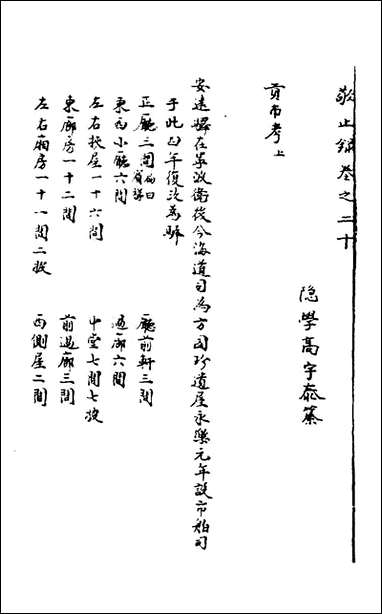 敬止録卷之二十
隐學高宇泰纂
貢市考上
安遠驛在寧波衛後今海道司為方国珍遺屋永樂元年設市舶司
于此四年復改為驛
正廳三間
廳前軒三間
東西小廳六間
過廊六間
左右挾屋一十六間
中堂七間七
東廊房一十二間
前過廊三間
左右廂房一十一間二
西側屋二間